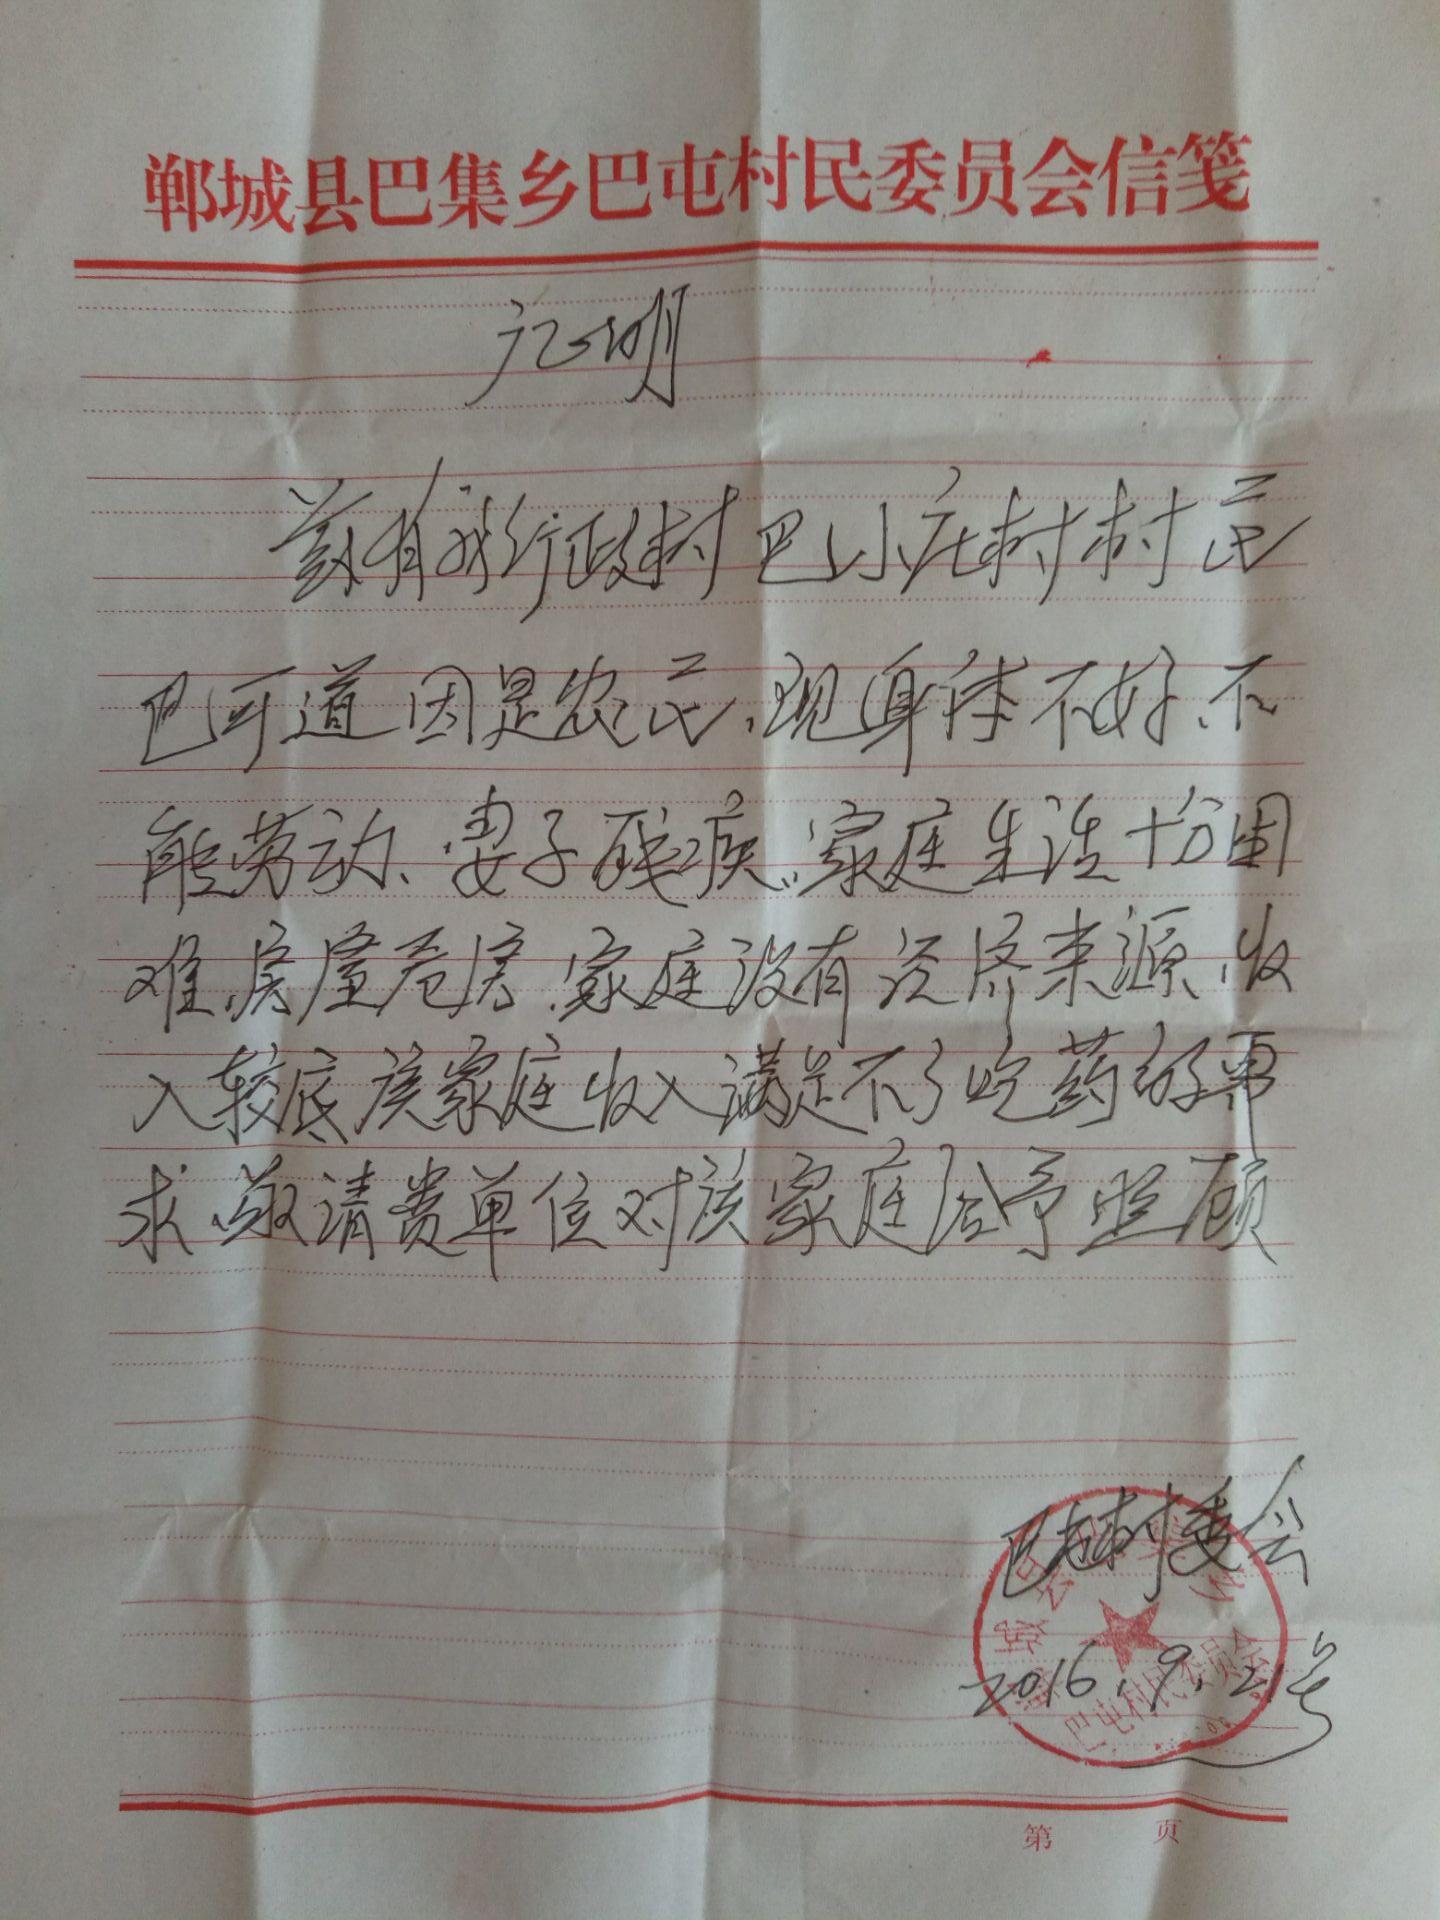 郸城县巴集乡巴屯村民委员会信笺
证明
兹有我行政村巴小庄村村民
巴可道因是农民、现身体不好、不
能劳动、妻子残疾、家庭生活十分困
难、房屋危房、家庭没有经济来源、收
入较底该家庭收入满足不了吃药的需
求、敬请贵单位对该家庭给予照顾
巴屯村委会
2016.9.21号
巴屯村民委员会
第 页